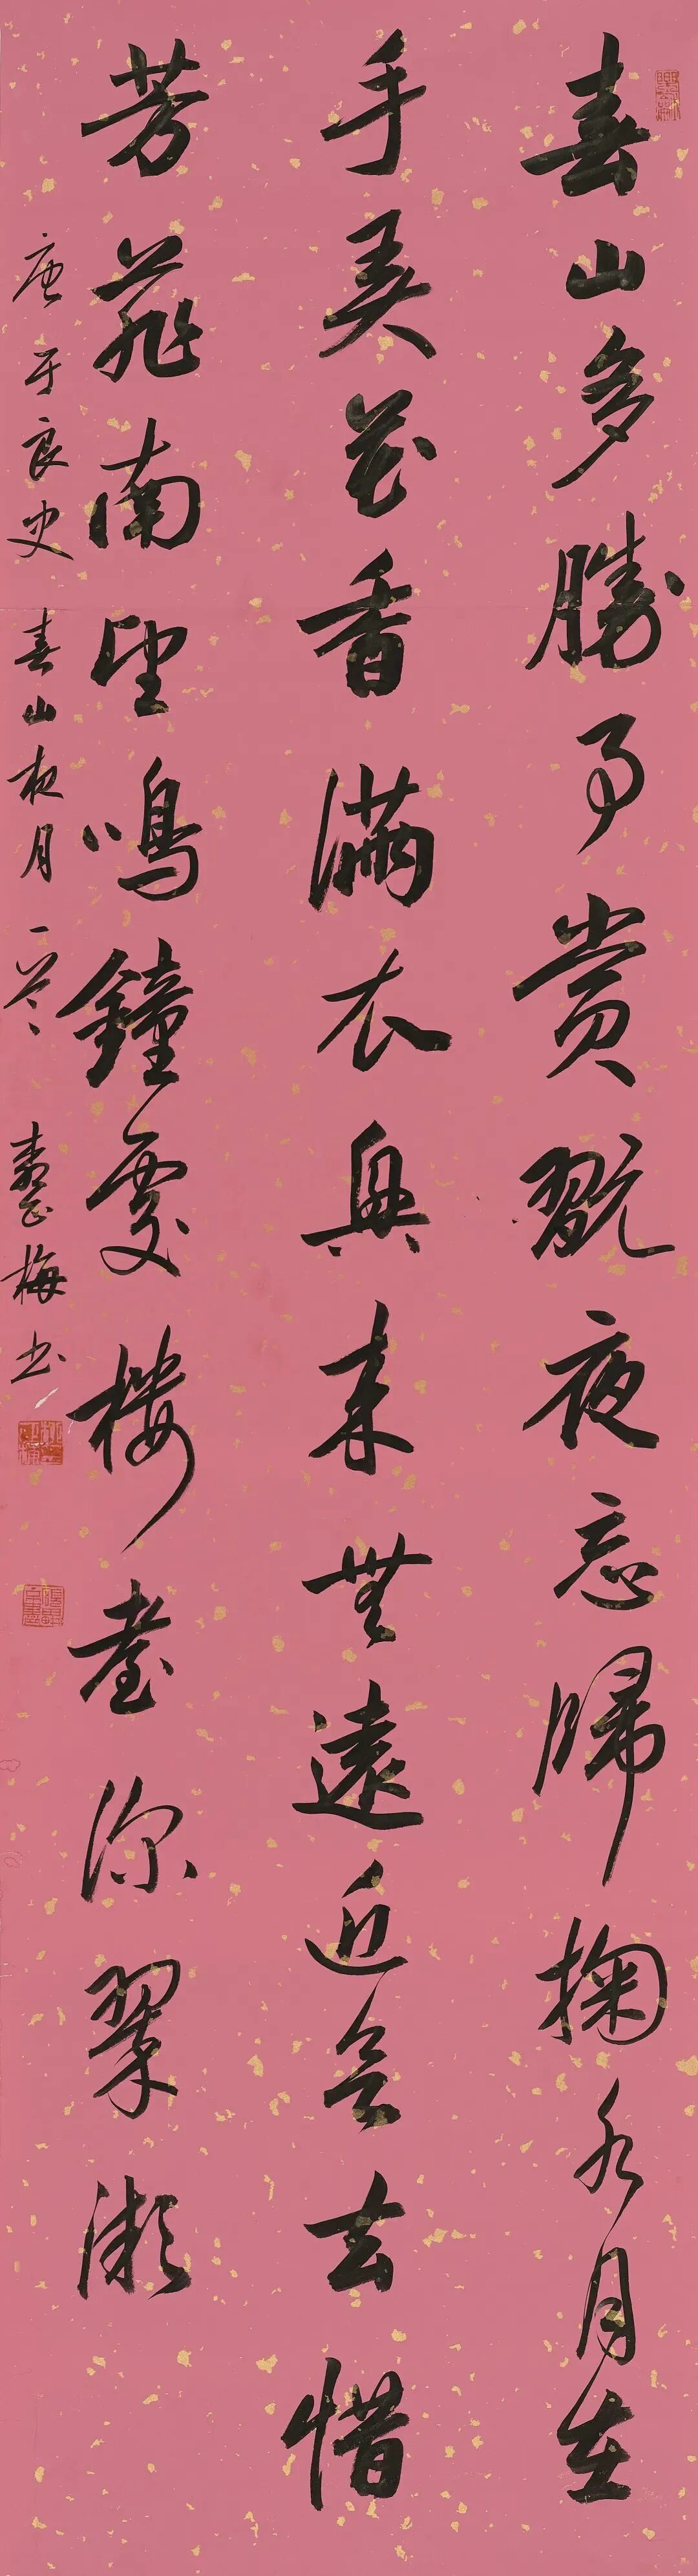 春山多勝事賞翫夜忘歸掬水月在
手弄花香滿衣興來無遠近欲去惜
芳菲南望鳴鐘處樓臺深翠微
唐于良史春山夜月一首 梅书